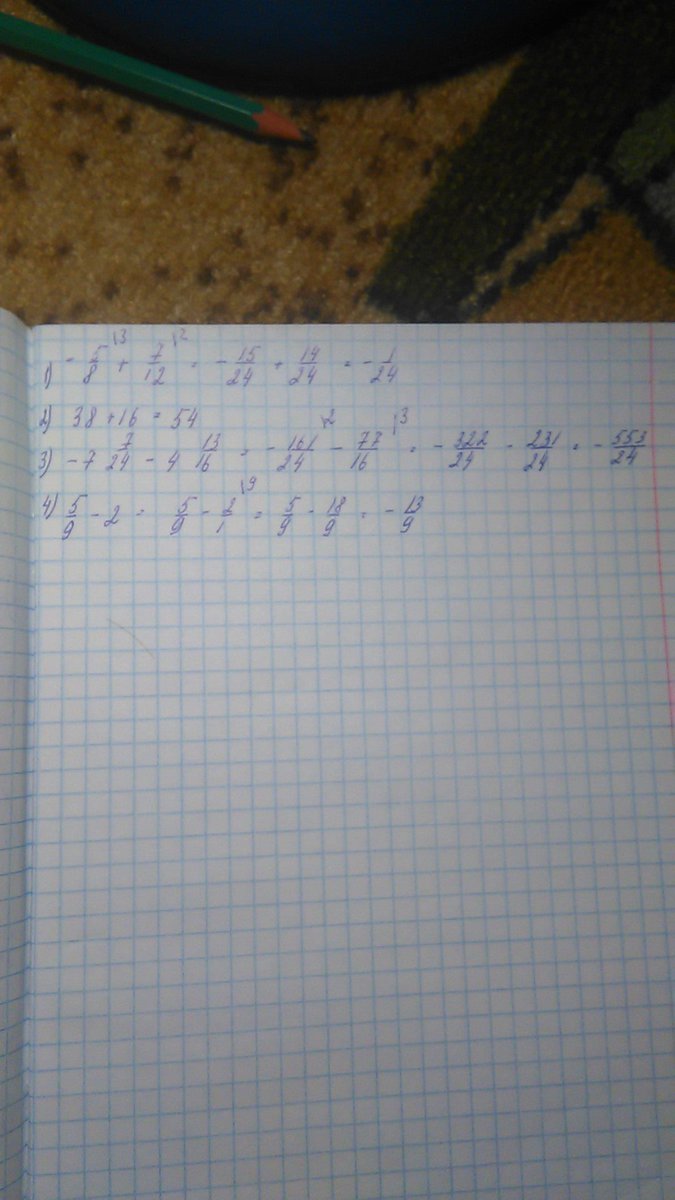 1) - 5/8 \3 + 7/12 \2 = - 15/24 + 14/24 = - 1/24
2) 38 + 16 = 54
3) - 7 7/24 - 4 13/16 = - 161/24 \2 - 77/16 \3 = - 322/24 - 231/24 = - 553/24
4) 5/9 - 2 = 5/9 - 2/1 \9 = 5/9 - 18/9 = - 13/9